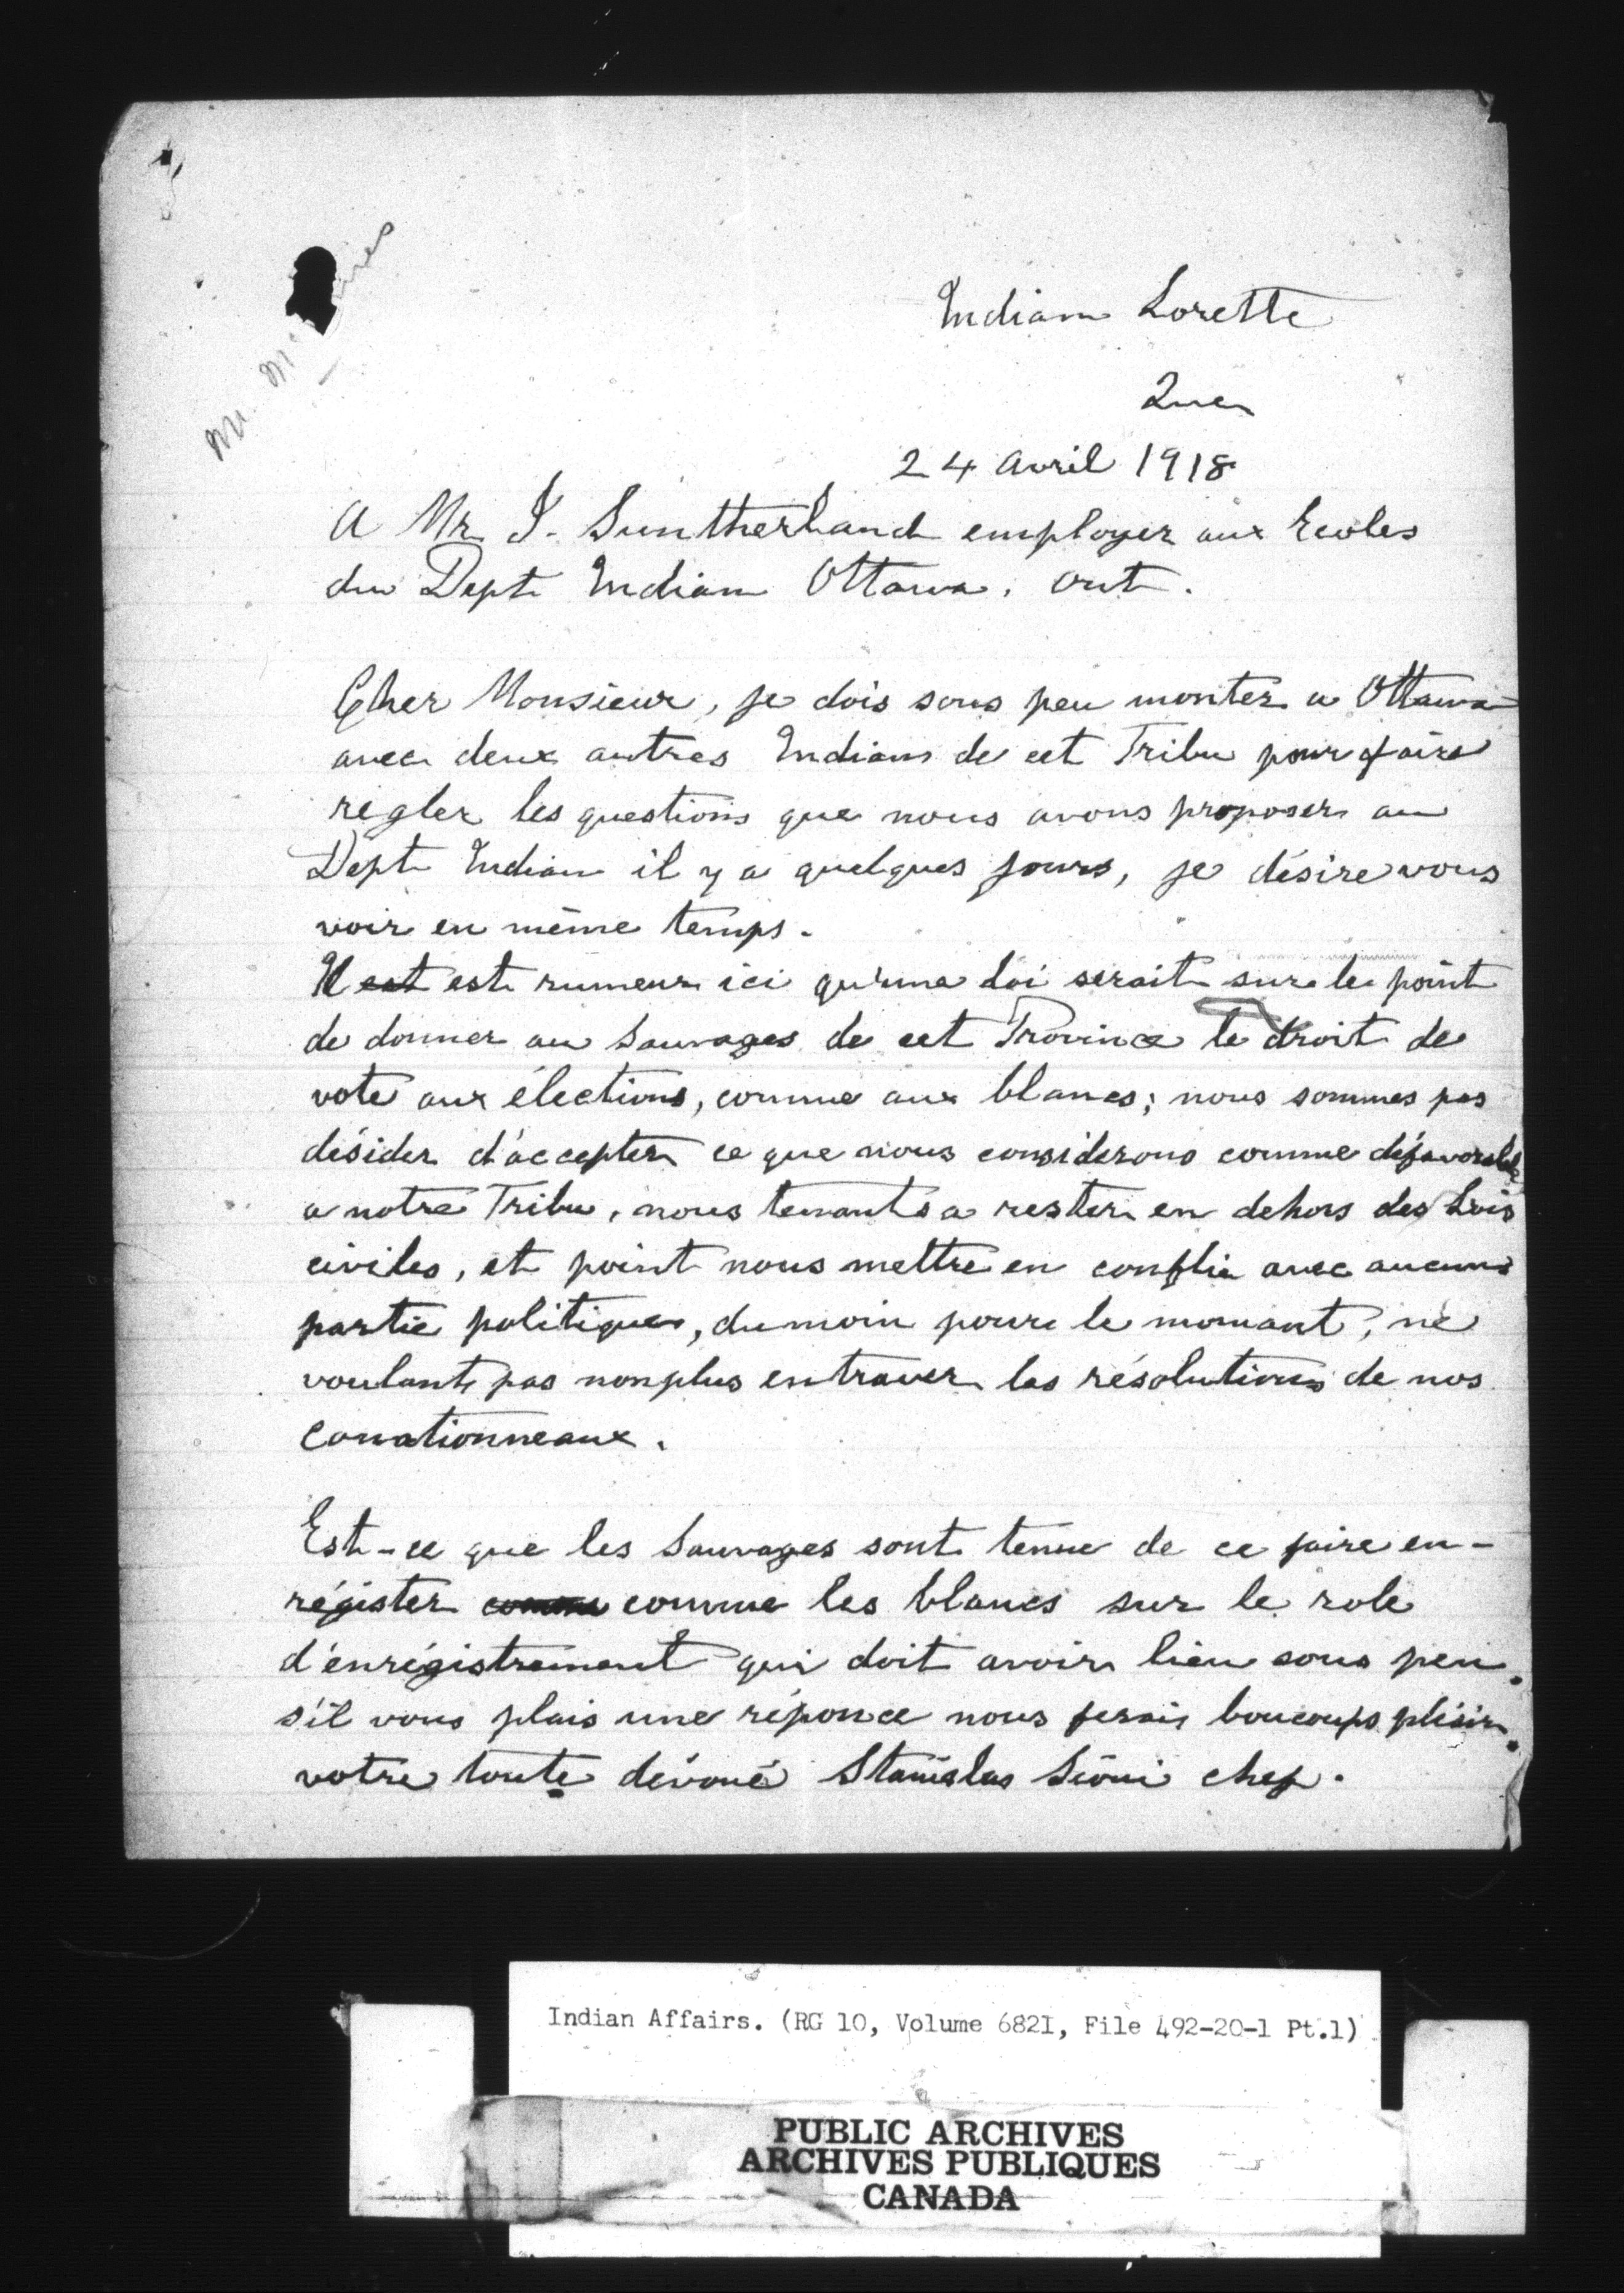 Indian Lorette
Quen
24 avril 1918
A Mr. J. Suntherland employer aux Ecoles
du Dept Indian Ottawa, Ont.
Cher Monsieur, je dois sous peu monter a Ottawa
avec deux autres Indians de cet Tribu pour faire
regler les questions que nous avons proposer au
Dept Indian il y a quelques jours, je désire vous
voir en même temps.
Il est est rumeur ici qu'une loi serait sur le point
de donner au Sauvages de cet Province le droit de
vote aux élections, comme aux blancs; nous sommes pas
désider d'accepter ce que nous considerons comme défavorable
a notre Tribu, nous tenants a rester en dehors des Lois
civiles, et point nous mettre en conflie avec aucune
partie politiques, dumoin pour le momant, ne
voulant pas nonplus entraver les résolutions de nos
conationneaux.
Est-ce que les Sauvages sont tenue de ce faire en-
régister comme comme les blancs sur le role
d'enrégistrement qui doit avoir lieu sous peu.
s'il vous plais une réponce nous ferais boucoups plésir.
votre toute dévoué Stanislas Sioui chef.
Mr.
Indian Affairs. (RG 10, Volume 6821, File 492-20-1 Pt.1)
PUBLIC ARCHIVES
ARCHIVES PUBLIQUES
CANADA